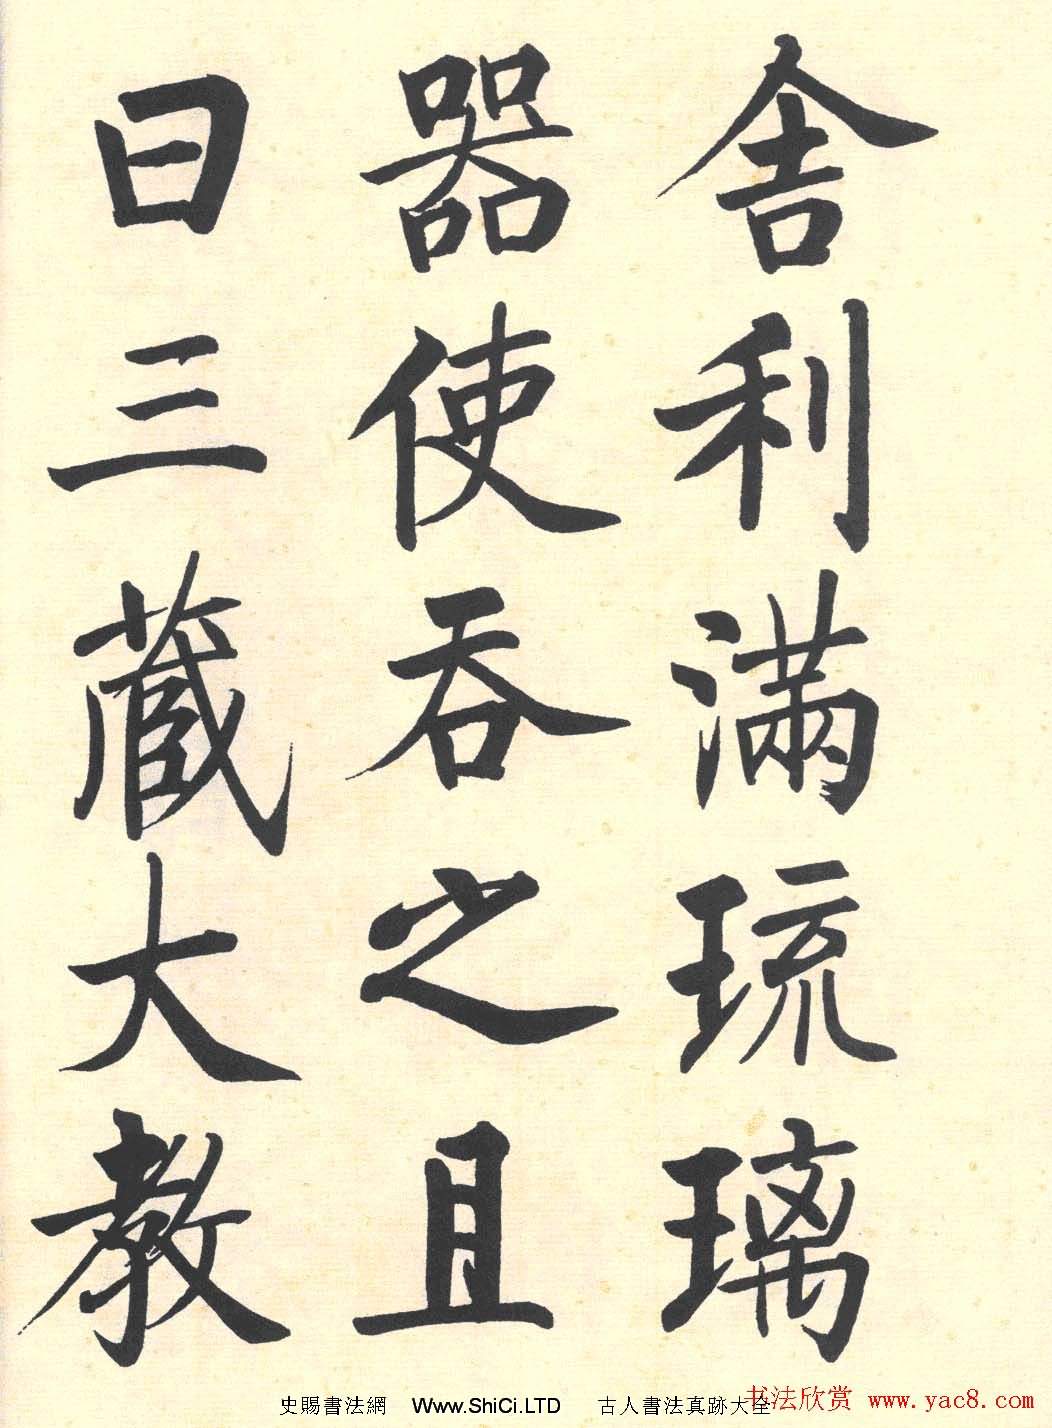 舍利滿琉璃
器使吞之且
曰三藏大教
史賜書法網 Www.ShiCi.LTD 古人書法真跡大全
书法欣赏 www.yac8.com